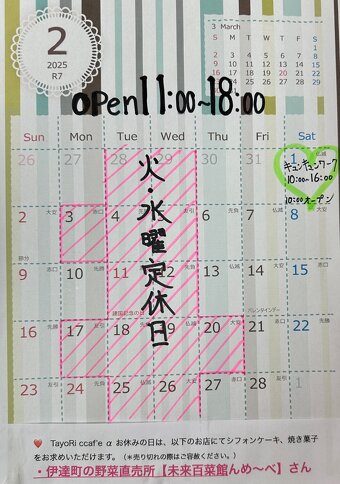 2
2025
R7
3 March
S M T W T F S
1
2 3 4 5 6 7 8
9 10 11 12 13 14 15
16 17 18 19 20 21 22
OPEN 11:00~18:00
Sun Mon Tue Wed Thu Fri Sat
26 27 28 29 30 31 1
キュンキュンワーク
10:00~16:00
10:00オープン
火・水曜定休日
2 3 4 5 6 7 8
節分
9 10 11 12 13 14 15
建国記念の日
バレンタインデー
16 17 18 19 20 21 22
23 24 25 26 27 28 1
♥ TayoRi ccaf'e α お休みの日は、以下のお店にてシフォンケーキ、焼き菓子
をお求めいただけます。(*売り切れの際はご容赦ください。)
・伊達町の野菜直売所【未来百菜館んめ～べ】さん